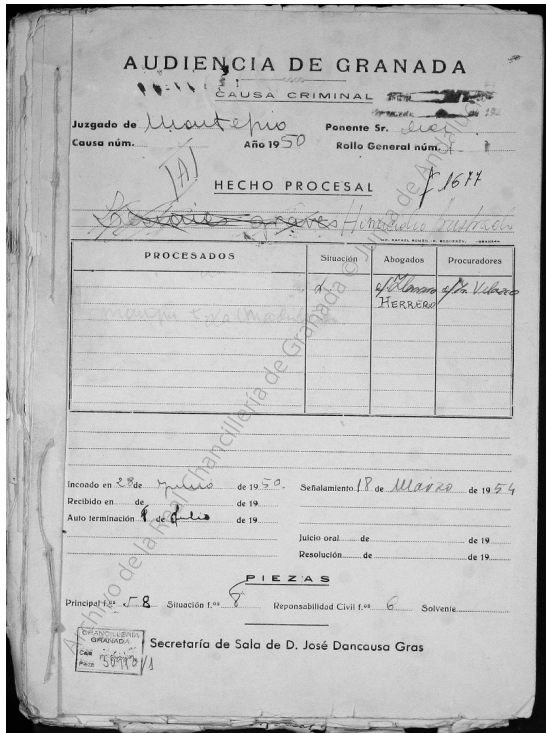 AUDIENCIA DE GRANADA
CAUSA CRIMINAL
Juzgado de Montefrio Ponente Sr.
Causa núm. Año 1950 Rollo General núm.
(A) 1677
HECHO PROCESAL
Lesiones graves Homicidio frustrado
PROCESADOS Situación Abogados Procuradores
HERRERO Velasco
Incoado en 28 de julio de 1950. Señalamiento 18 de Marzo de 1954
Recibido en de de 19
Auto terminación de Julio de 19
Juicio oral de de 19
Resolución de de 19
PIEZAS
Principal f.os 58 Situación f.os 8 Reponsabilidad Civil f.os 6 Solvente
CHANCILLERIA
GRANADA
Caja
Pieza
Secretaría de Sala de D. José Dancausa Gras
Archivo de la Real Chancillería de Granada © Junta de Andalucía